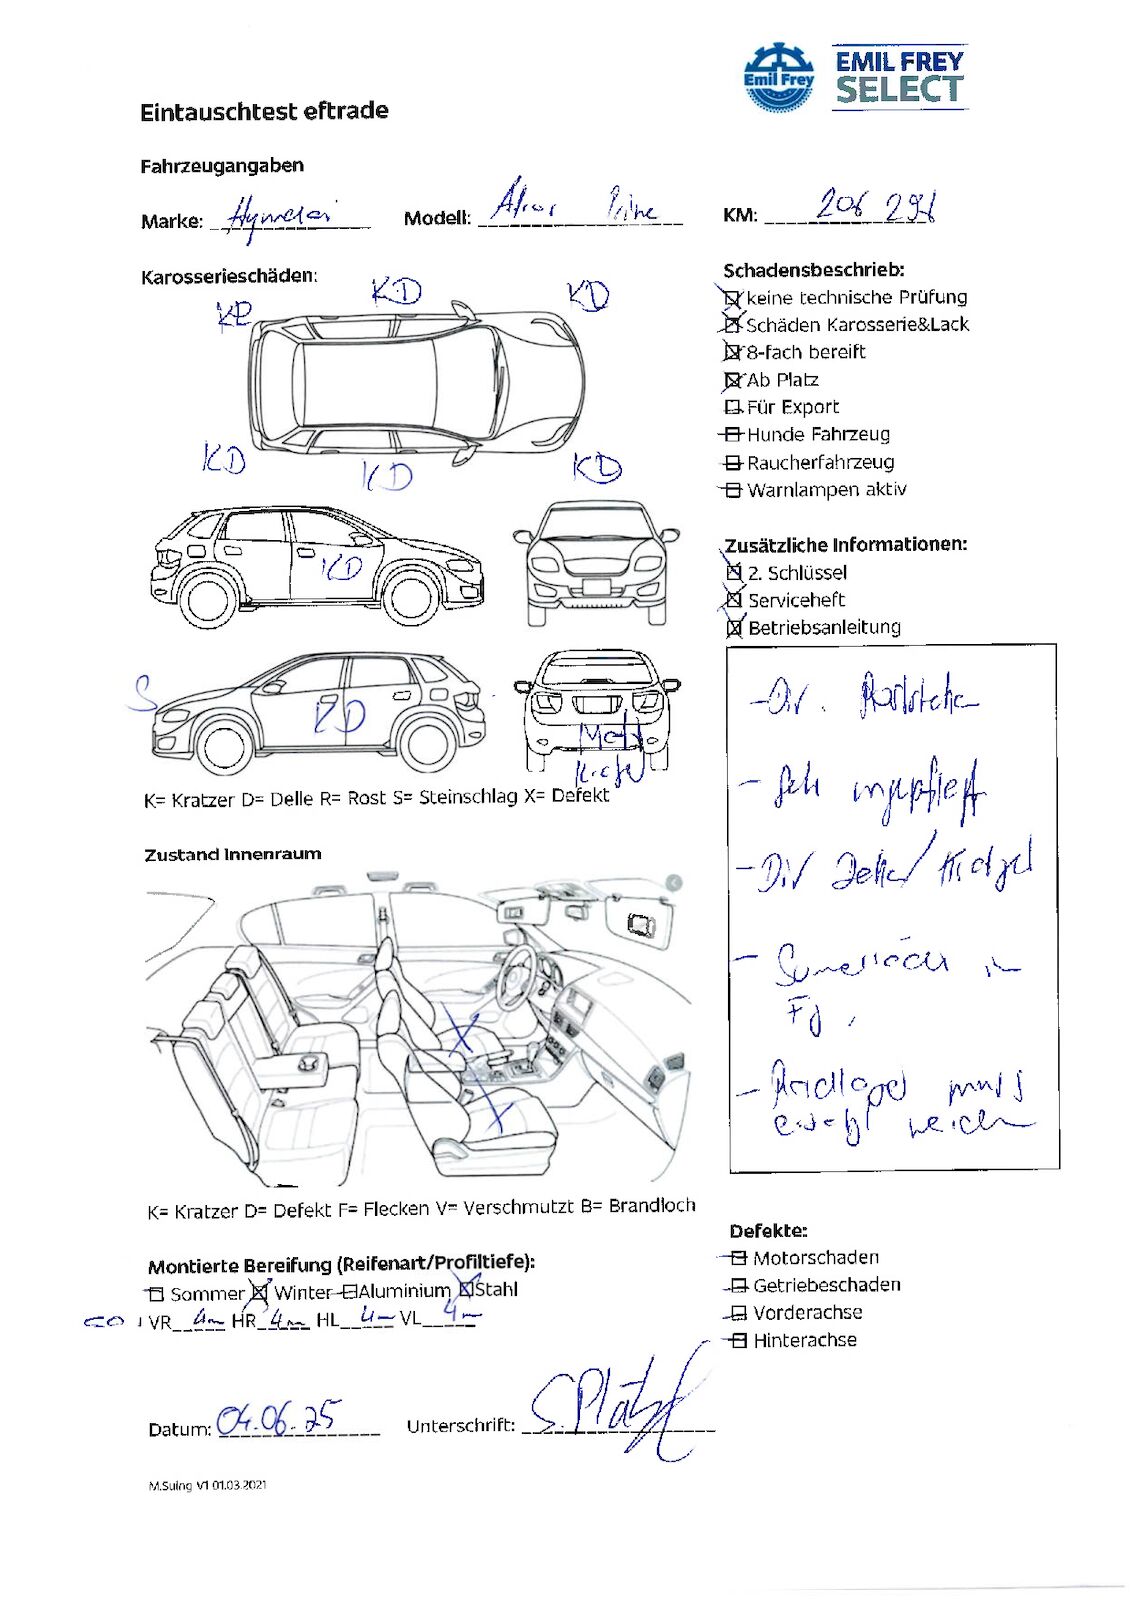 Emil Frey
EMIL FREY
SELECT
Eintauschtest eftrade
Fahrzeugangaben
Marke: Modell: KM: 206
Karosserieschäden:
KD KD KD
KD KD KD
KD
S KD
K= Kratzer D= Delle R= Rost S= Steinschlag X= Defekt
Schadensbeschrieb:
keine technische Prüfung
Schäden Karosserie&Lack
8-fach bereift
Ab Platz
Für Export
Hunde Fahrzeug
Raucherfahrzeug
Warnlampen aktiv
Zusätzliche Informationen:
2. Schlüssel
Serviceheft
Betriebsanleitung
- Div.
- ungepflegt
- Div Dellen/Kratzer
- in
- muss
Zustand Innenraum
X
X
K= Kratzer D= Defekt F= Flecken V= Verschmutzt B= Brandloch
Montierte Bereifung (Reifenart/Profiltiefe):
Sommer Winter Aluminium Stahl
VR 4mm HR 4mm HL 4mm VL 4mm
Defekte:
Motorschaden
Getriebeschaden
Vorderachse
Hinterachse
Datum: 04.06.25 Unterschrift:
M.Suing V1 01.03.2021